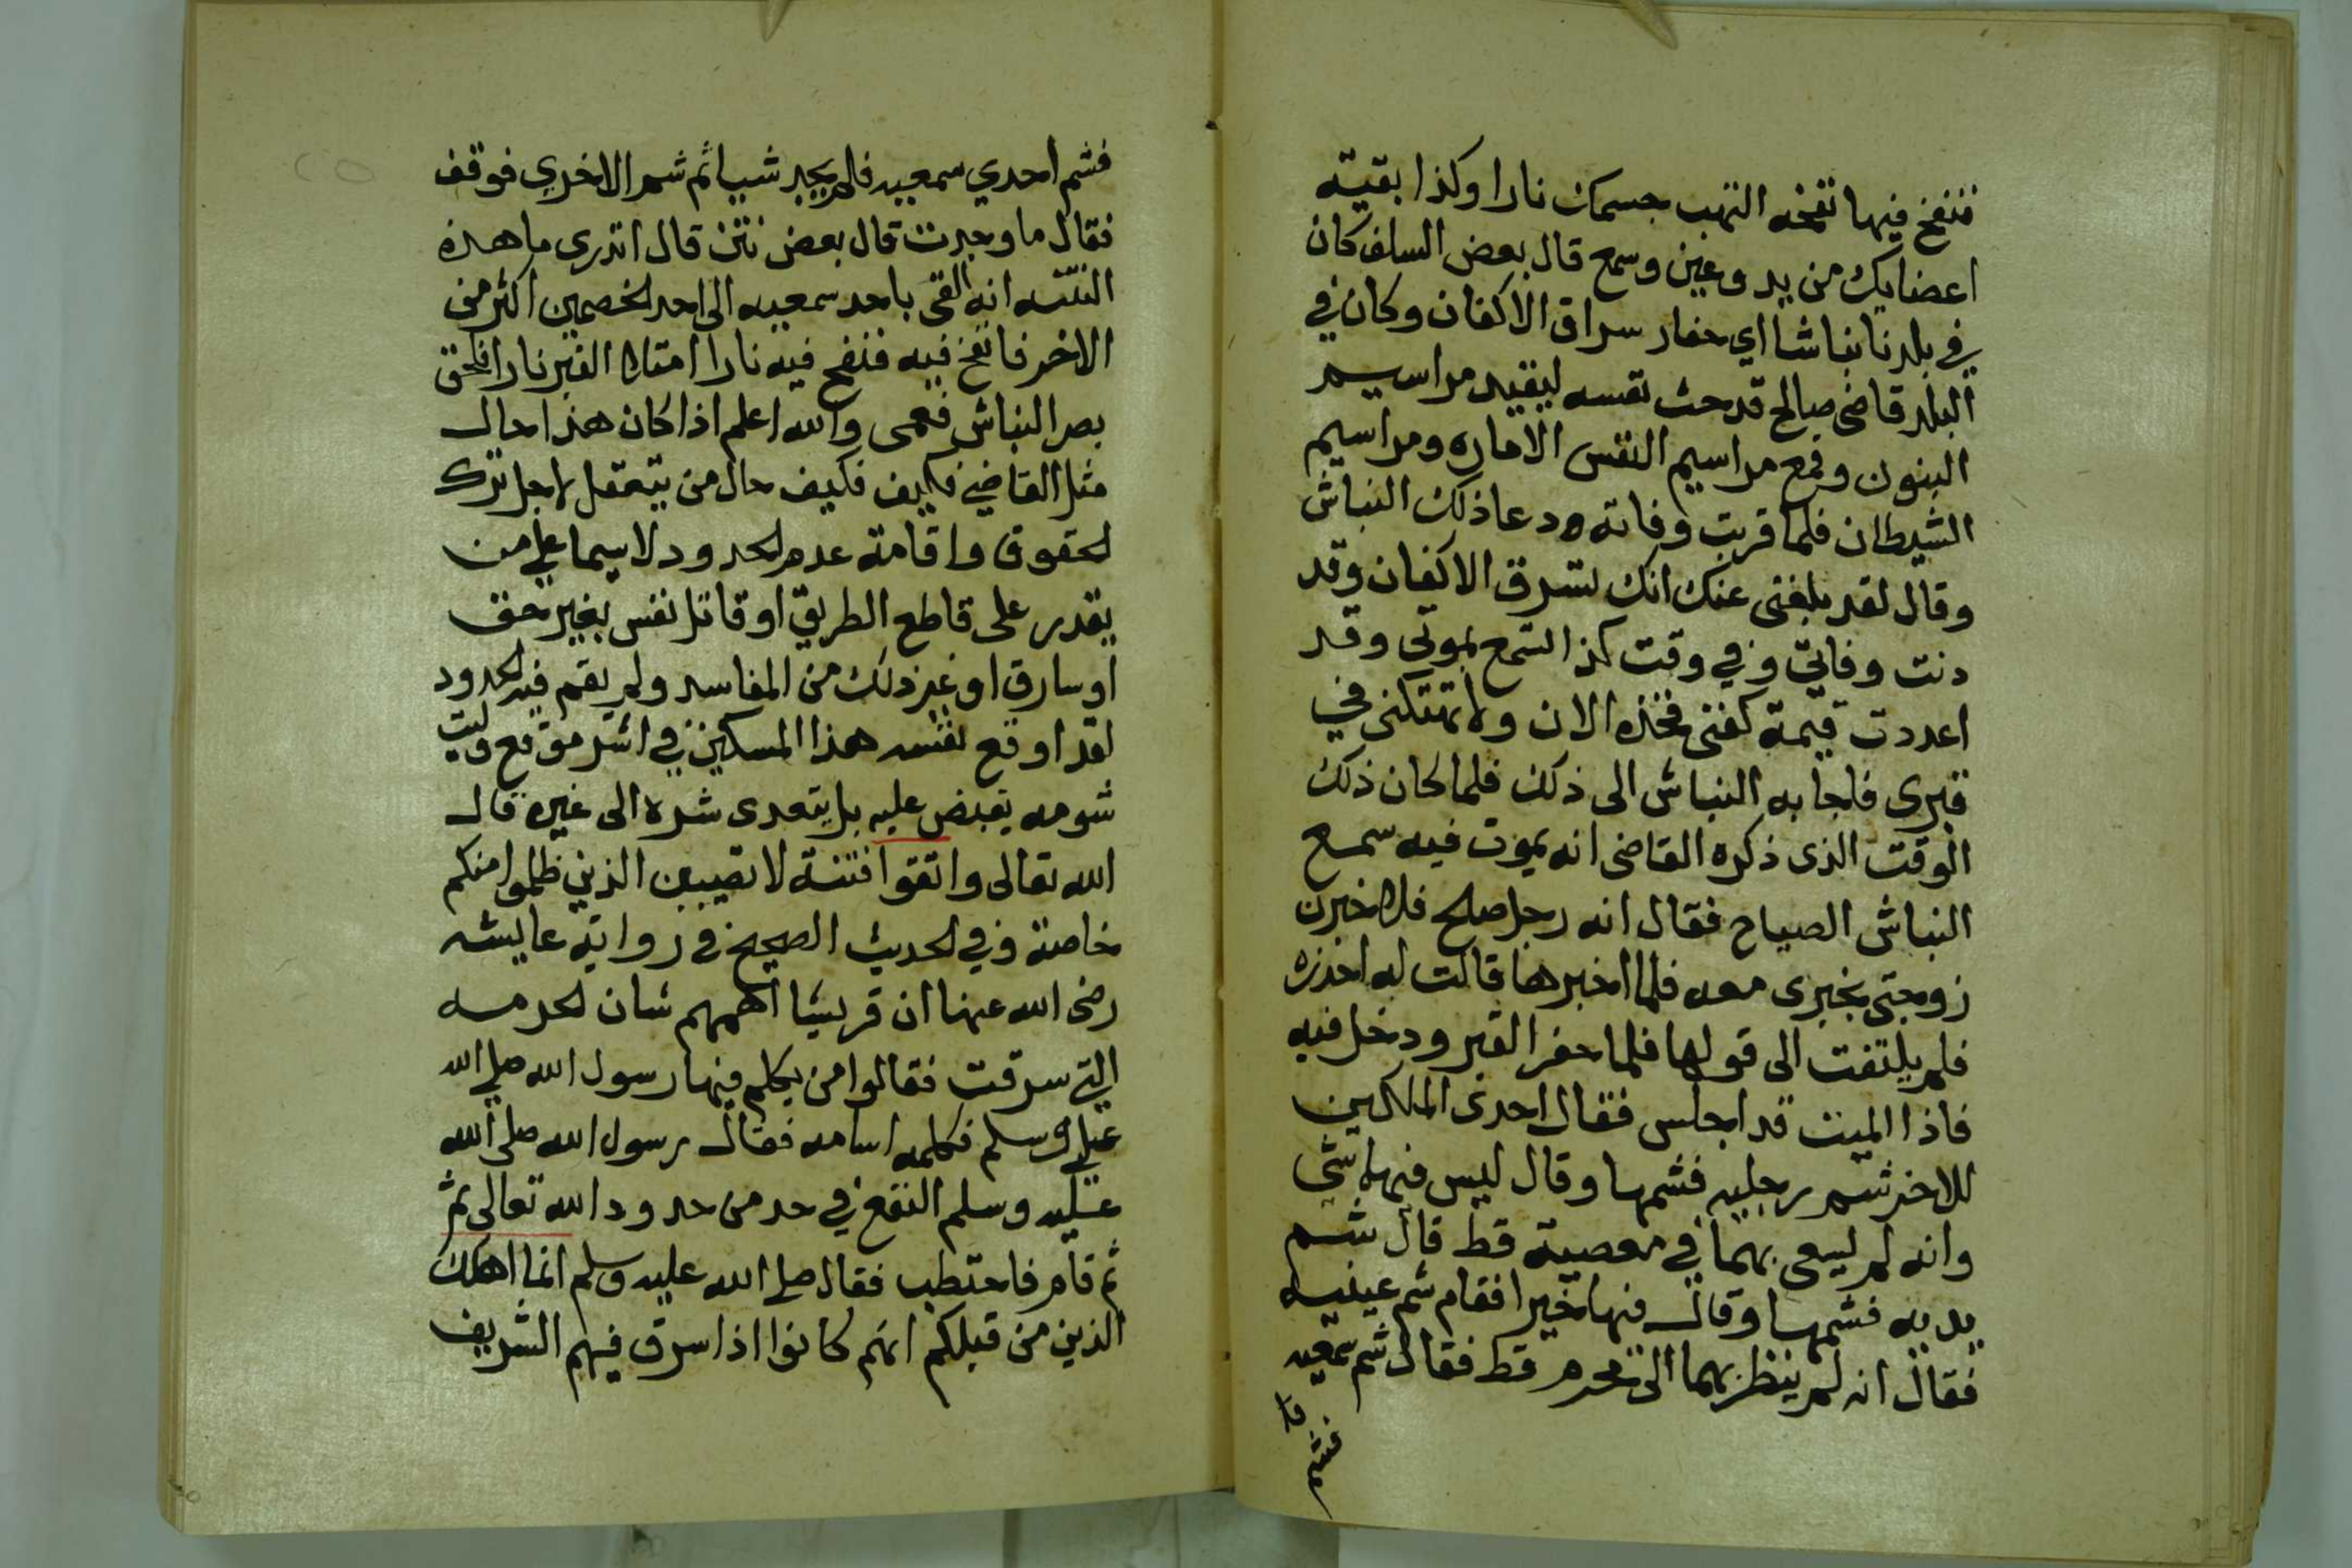 فنفخ فيها نفخه التهب جسمك نارا وكذا بقية
اعضايك من يد وعين وسمع قال بعض السلف كان
في بلدنا نباشا اي حفار سراق الاكفان وكان في
البلد قاضى صالح قد حث نفسه ليقيد مراسيم
البنون وقمع مراسيم النفس الاماره ومراسيم
الشيطان فلما قربت وفاته دعا ذلك النباش
وقال لقد بلغنى عنك انك تسرق الاكفان وقد
دنت وفاتي وفي وقت كذا تسمع بموتي وقد
اعددت قيمة كفنى فخذه الان ولا تهتكنى في
قبرى فاجابه النباش الى ذلك فلما كان ذلك
الوقت الذى ذكره القاضى انه يموت فيه سمع
النباش الصياح فقال انه رجل صلح فلاخبرن
زوجتى بخبرى معه فلما اخبرها قالت له احذره
فلم يلتفت الى قولها فلما حفر القبر ودخل فيه
فاذا الميت قد اجلس فقال احدى الملكين
للاخر شم رجليه فشمها وقال ليس فيها شى
وانه لم يسعى بهما في معصية قط قال شم
يديه فشمها وقال فيها خيرا فقام شم عينيه
فقال انه لم ينظر بهما الى محرم قط فقال شم سمعيه
فشم
فشم احدي سمعيه فلم يجد شيا ثم شم الاخري فوقف
فقال ما وجدت قال بعض نتن قال اتدرى ما هذه
النتنه انه القى باحد سمعيه الى احد الخصمين اكثر من
الاخر فانفخ فيه فنفخ فيه نارا امتلا القبر نارا فلحق
بصر النباش فعمى والله اعلم اذا كان هذا حال
مثل القاضي فكيف فكيف حال من يتعقل لاجل ترك
لحقوق واقامة عدم لحدود لاسيما على من
يقدر على قاطع الطريق او قاتل نفس بغير حق
او سارق او غير ذلك من المفاسد ولم يقم فيه لحدود
لقد اوقع نفسه هذا المسكين في اشد موقع وليت
شومه يقبض عليه بل يتعدى شره الى غيره قال
الله تعالى واتقوا فتنة لا تصيبن الذين ظلموا منكم
خاصة وفي لحديث الصحيح في رواية عايشه
رضى الله عنها ان قريشا اهمهم شان لحرمه
التي سرقت فقالوا من يكلم فيها رسول الله صلى الله
عليه وسلم فكلمه اسامه فقال رسول الله صلى الله
عليه وسلم اتشفع في حد من حدود الله تعالى ثم
ثم قام فاختطب فقال صلى الله عليه وسلم انما اهلك
الذين من قبلكم انهم كانوا اذا سرق فيهم الشريف